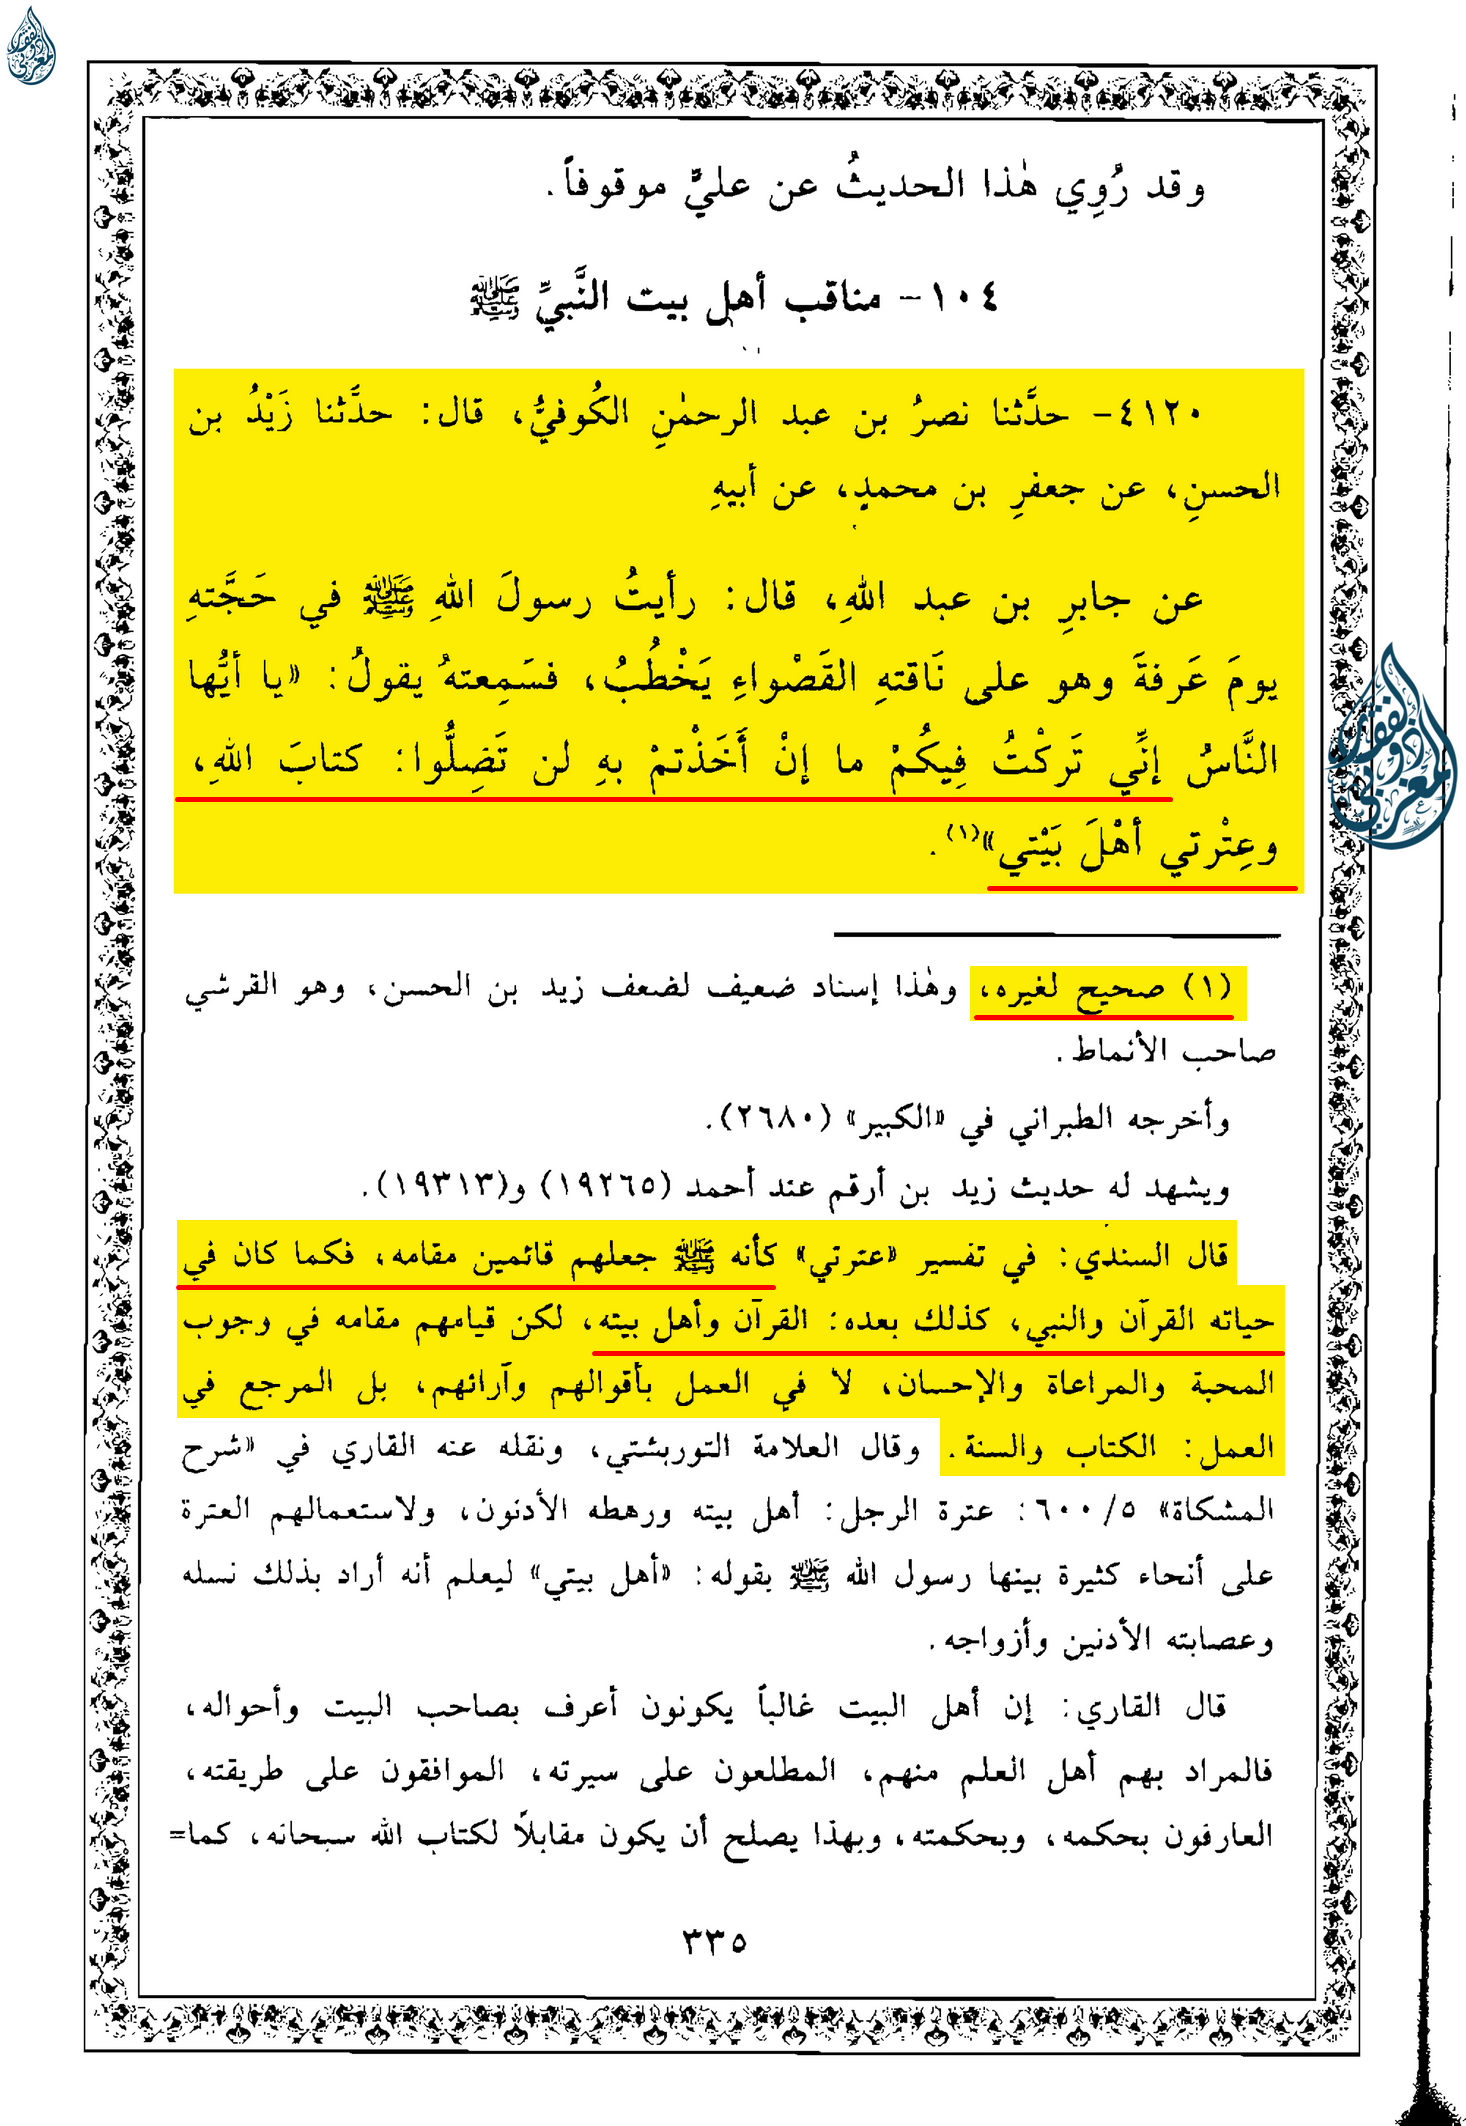 وقد رُوِي هٰذا الحديثُ عن عليٍّ موقوفاً.
١٠٤- مناقب أهل بيت النَّبيِّ ﷺ
٤١٢٠- حدَّثنا نصرُ بن عبد الرحمٰنِ الكُوفيُّ، قال: حدَّثنا زَيْدُ بن
الحسنِ، عن جعفرِ بن محمدٍ، عن أبيهِ
عن جابرِ بن عبد اللهِ، قال: رأيتُ رسولَ اللهِ ﷺ في حَجَّتهِ
يومَ عَرفةَ وهو على نَاقتهِ القَصْواءِ يَخْطُبُ، فسَمِعتهُ يقولُ: «يا أيُّها
النَّاسُ إنِّي تَركْتُ فِيكُمْ ما إنْ أَخَذْتمْ بهِ لن تَضِلُّوا: كتابَ اللهِ،
وعِتْرتي أهْلَ بَيْتي»(١).
(١) صحيح لغيره، وهٰذا إسناد ضعيف لضعف زيد بن الحسن، وهو القرشي
صاحب الأنماط.
وأخرجه الطبراني في «الكبير» (٢٦٨٠).
ويشهد له حديث زيد بن أرقم عند أحمد (١٩٢٦٥) و(١٩٣١٣).
قال السندي: في تفسير «عترتي» كأنه ﷺ جعلهم قائمين مقامه، فكما كان في
حياته القرآن والنبي، كذلك بعده: القرآن وأهل بيته، لكن قيامهم مقامه في وجوب
المحبة والمراعاة والإحسان، لا في العمل بأقوالهم وآرائهم، بل المرجع في
العمل: الكتاب والسنة. وقال العلامة التوربشتي، ونقله عنه القاري في «شرح
المشكاة» ٥/٦٠٠: عترة الرجل: أهل بيته ورهطه الأدنون، ولاستعمالهم العترة
على أنحاء كثيرة بينها رسول الله ﷺ بقوله: «أهل بيتي» ليعلم أنه أراد بذلك نسله
وعصابته الأدنين وأزواجه.
قال القاري: إن أهل البيت غالباً يكونون أعرف بصاحب البيت وأحواله،
فالمراد بهم أهل العلم منهم، المطلعون على سيرته، الموافقون على طريقته،
العارفون بحكمه، وبحكمته، وبهذا يصلح أن يكون مقابلاً لكتاب الله سبحانه، كما=
٣٣٥